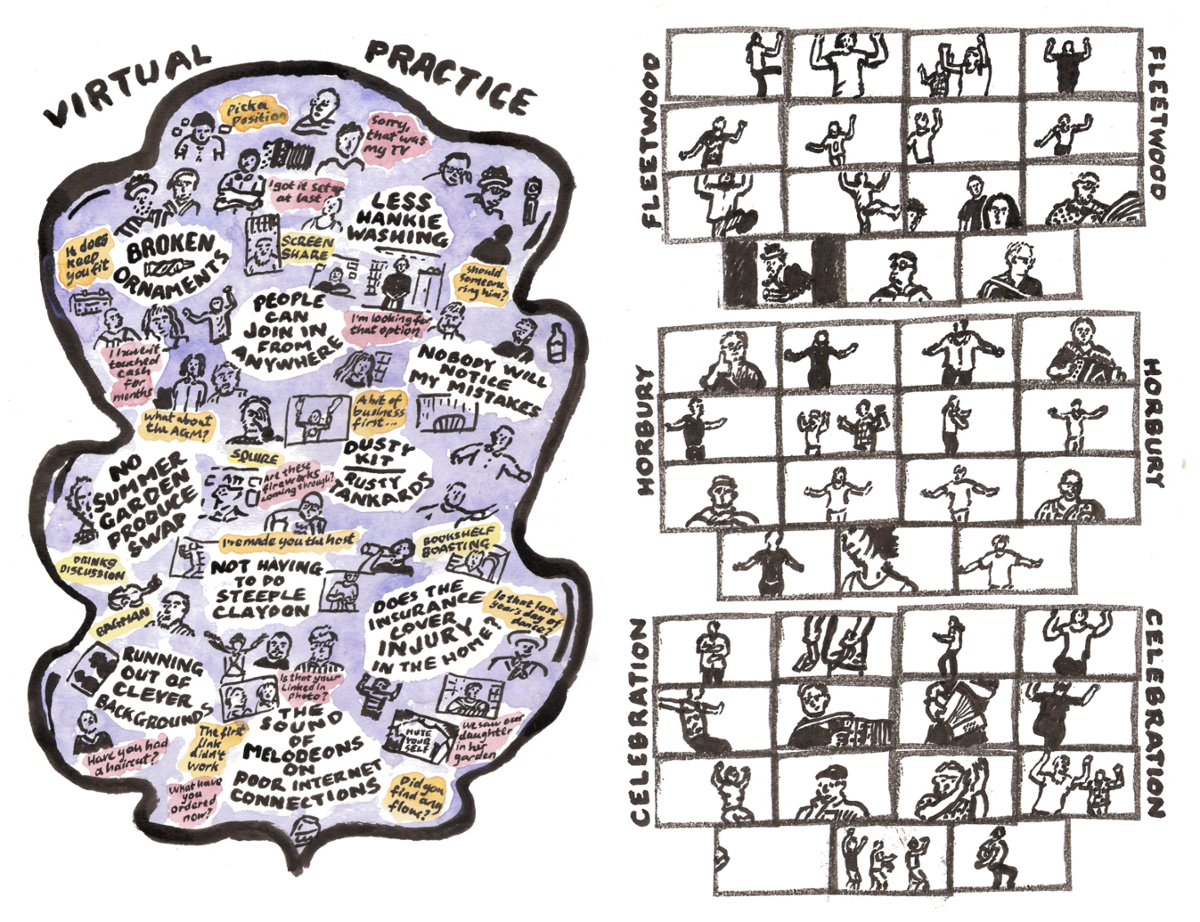 VIRTUAL PRACTICE
Pick a
position
Sorry,
that was
my TV
I got it set up
at last
LESS
HANKIE
WASHING
SCREEN
SHARE
It does
keep
you fit
BROKEN
ORNAMENTS
should
someone
ring him?
PEOPLE
CAN
JOIN IN
FROM
ANYWHERE
I'm looking for
that option
I haven't
touched
cash
for
months
NOBODY WILL
NOTICE
MY MISTAKES
what about
the AGM?
A bit of
business
first...
SQUIRE
DUSTY
KIT
RUSTY
TANKARDS
Are these
fireworks
coming through?
NO
SUMMER
GARDEN
PRODUCE
SWAP
I've made you the host
BOOKSHELF
BOASTING
DRINKS
DISCUSSION
NOT HAVING
TO DO
STEEPLE
CLAYDON
BAGMAN
DOES THE
INSURANCE
COVER
INJURY
IN THE HOME?
Is that last
year's day of
dance?
RUNNING
OUT OF
CLEVER
BACKGROUNDS
Is that your
Linked in
photo?
THE
SOUND
OF
MELODEONS
ON
POOR INTERNET
CONNECTIONS
MUTE
YOUR
SELF
We saw our
daughter
in her
garden
Have you had
a haircut?
The first
link
didn't
work
What have
you
ordered
now?
Did you
find any
flour?
FLEETWOOD
FLEETWOOD
HORBURY
HORBURY
CELEBRATION
CELEBRATION